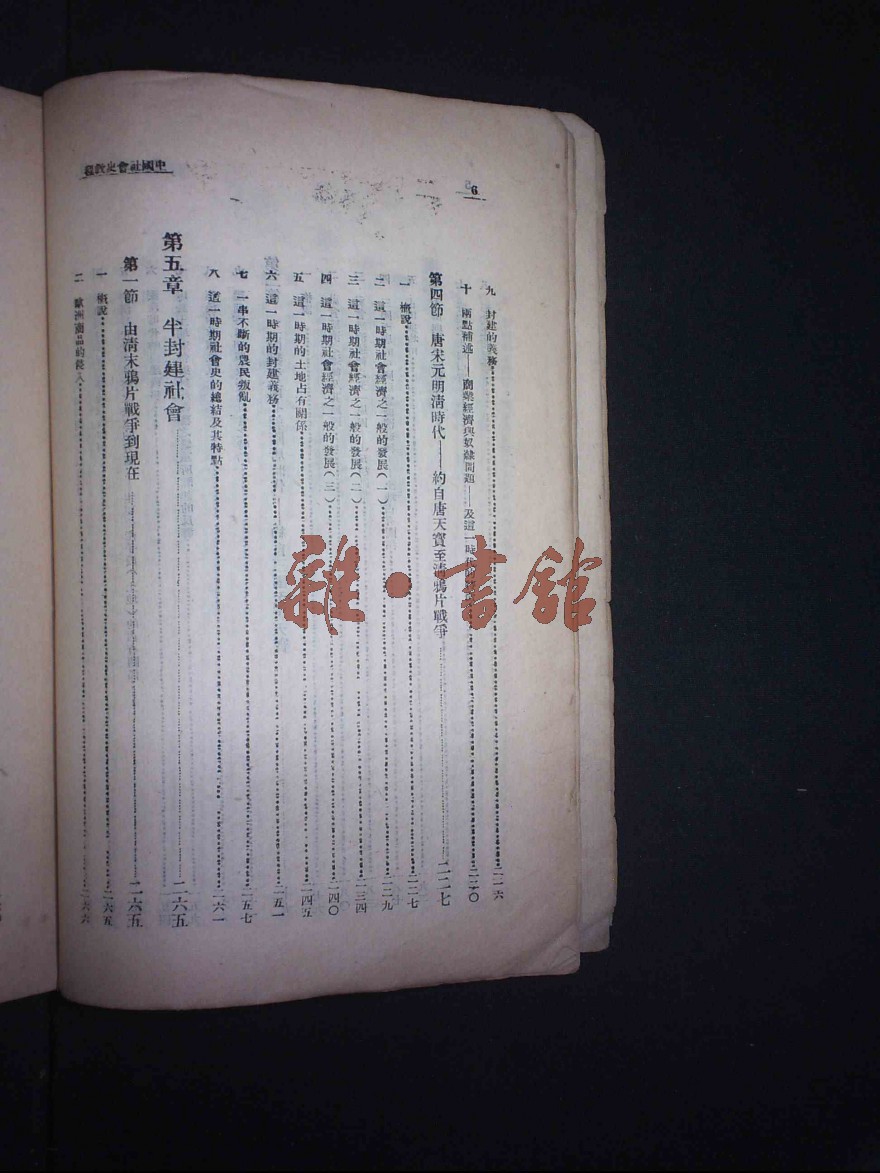 中國社會史教程
6
九 封建的義務 二一六
十 兩點補述——商業經濟與奴隸問題——及這一時代 二二〇
第四節 唐宋元明清時代——約自唐天寶至清鴉片戰爭 二二七
一 概說 二二七
二 這一時期社會經濟之一般的發展(一) 二二九
三 這一時期社會經濟之一般的發展(二) 二三四
四 這一時期社會經濟之一般的發展(三) 二四〇
五 這一時期的土地占有關係 二四五
六 這一時期的封建義務 二五一
七 一串不斷的農民叛亂 二五七
八 這一時期社會史的總結及其特點 二六一
第五章 半封建社會 二六五
第一節 由清末鴉片戰爭到現在 二六五
一 概說 二六五
二 歐洲商品的侵入 二六六
雜·書館